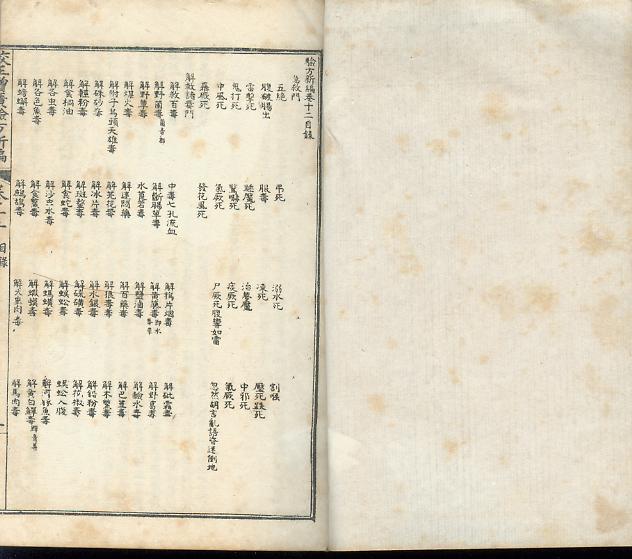 驗方新編卷十二目錄
急救門
五絕 吊死 溺水死 割喉
腹破腸出 服毒 凍死 壓死跌死
雷擊死 魘魔死 治夢魘 中邪死
鬼打死 驚嚇死 厥死 氣厥死
中風死 氣厥死 尸厥死腹響如雷 忽然胡言亂語昏迷倒地
厥死 發花風死
解救諸毒門
解救百毒 中毒七孔流血 解鴉片煙毒 解砒霜毒
解野菌毒菌音郡 解斷腸草毒 解毒 解野葛毒
解野草毒 水莨菪毒 解鹽滷毒 解水毒
解煤火毒 解迷悶藥 解百藥毒 解巴豆毒
解附子烏頭天雄毒 解芫花毒 解狼毒毒 解木鱉毒
解硃砂毒 解冰片毒 解水銀毒 解鉛粉毒
解輕粉毒 解斑蝥毒 解硫磺毒 解花椒毒
解食桐油 解食蛇毒 解蜈蚣毒 蜈蚣入腹
解各虫毒 解沙虫水毒 解螞蟥毒 解河豚魚毒
解各色魚毒 解食鱉毒 解蝦蟆毒 解黃白鱔毒鱔音善
解螃蟹毒 解毒 解肉毒 解馬肉毒
校正增廣驗方新編 卷十二 目錄 一